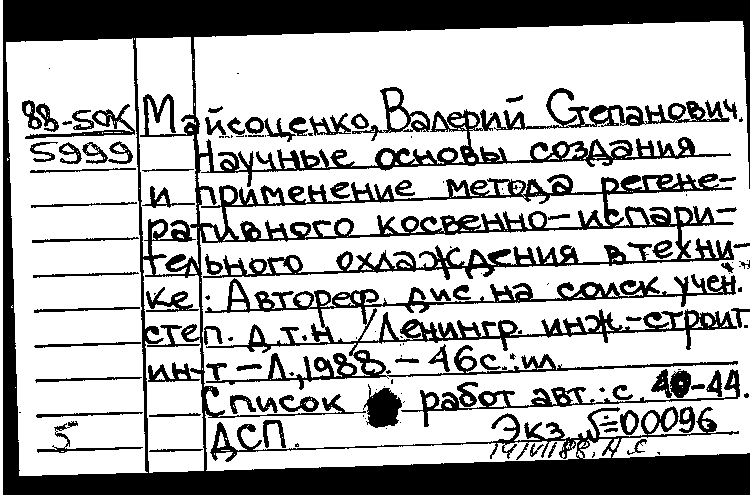 88-50К Майсоценко, Валерий Степанович.
5999 Научные основы создания
и применение метода регене-
ративного косвенно-испари-
тельного охлаждения в техни-
ке: Автореф. дис. на соиск. учен.
степ. д.т.н. / Ленингр. инж.-строит.
ин-т. - Л., 1988. - 46с.: ил.
Список работ авт.: с. 40-44.
5 ДСП. Экз. №=00096
14/VII 88. Н.С.